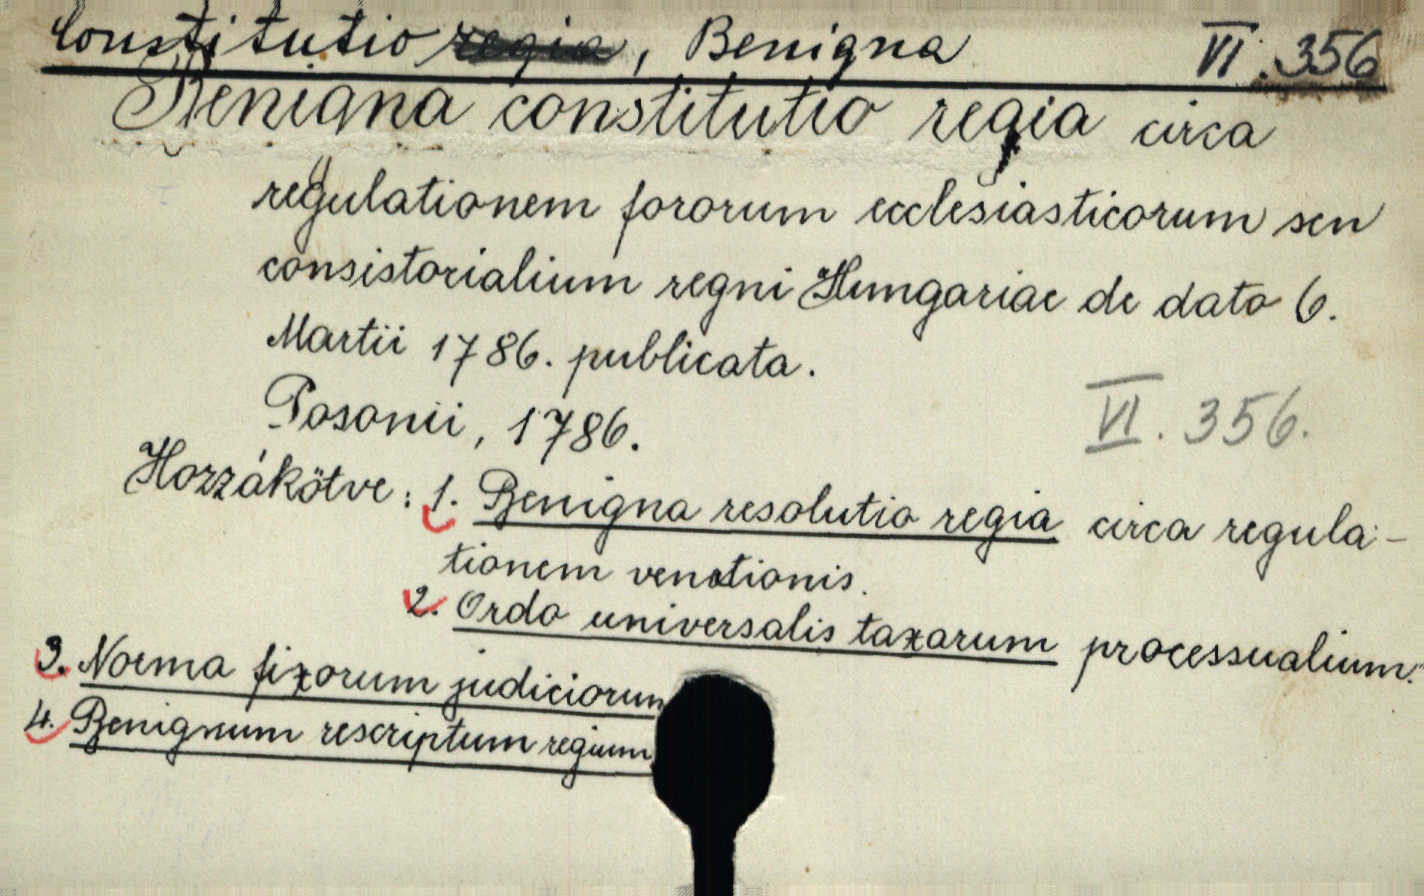 Constitutio regia, Benigna VI. 356
Benigna constitutio regia circa
regulationem fororum ecclesiasticorum seu
consistorialium regni Hungariae de dato 6.
Martii 1786. publicata.
Posonii, 1786.
VI. 356.
Hozzákötve: 1. Benigna resolutio regia circa regula-
tionem venationis.
2. Ordo universalis taxarum processualium.
3. Norma fixorum judiciorum
4. Benignum rescriptum regium